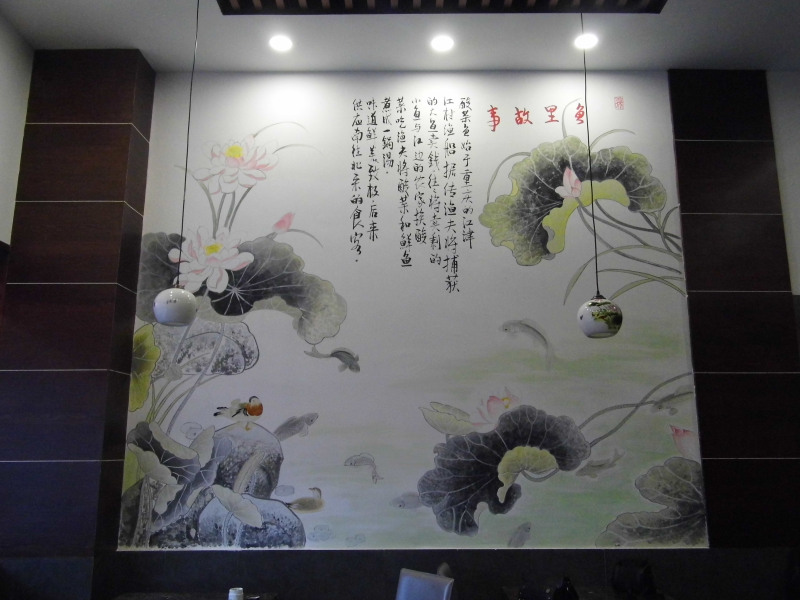 鱼里故事
酸菜鱼始于重庆的江津
江村渔船据传渔夫将捕获
的大鱼卖钱往往将卖剩的
小鱼与江边的农家换酸
菜吃渔夫将酸菜和鲜鱼
煮成一锅汤。
味道鲜美致极后来
供应南往北来的食客。